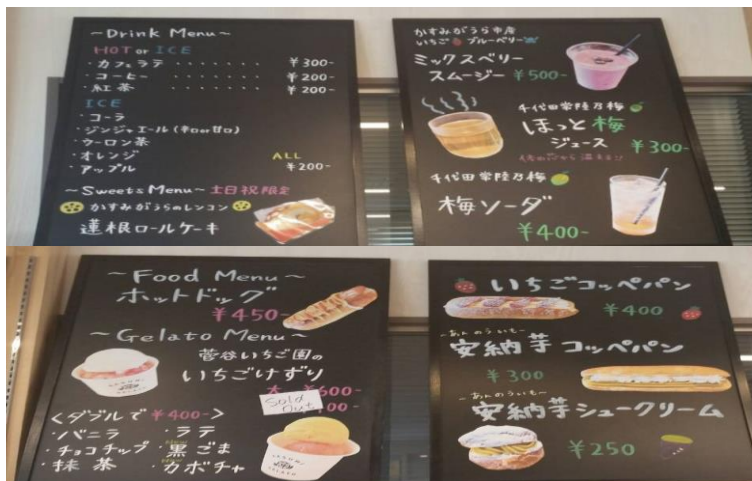 ~Drink Menu~
HOT or ICE
・カフェラテ ・・・・・・・ ¥300-
・コーヒー ・・・・・・・ ¥200-
・紅茶 ・・・・・・・ ¥200-
ICE
・コーラ
・ジンジャエール(辛口or甘口)
・ウーロン茶
・オレンジ ALL
・アップル ¥200-
~Sweets Menu~土日祝限定
かすみがうらのレンコン
蓮根ロールケーキ
かすみがうら市産
いちご ブルーベリー
ミックスベリー
スムージー ¥500-
千代田常陸乃梅
ほっと梅
ジュース ¥300-
千代田常陸乃梅
梅ソーダ
¥400-
~Food Menu~
ホットドッグ
¥450-
~Gelato Menu~
菅谷いちご園の
いちごけずり
Sold
Out
<ダブルで ¥400->
・バニラ ・ラテ
・チョコチップ ・黒ごま
・抹茶 ・カボチャ
いちごコッペパン
¥400
-あんのういも-
安納芋コッペパン
¥300
-あんのういも-
安納芋シュークリーム
¥250